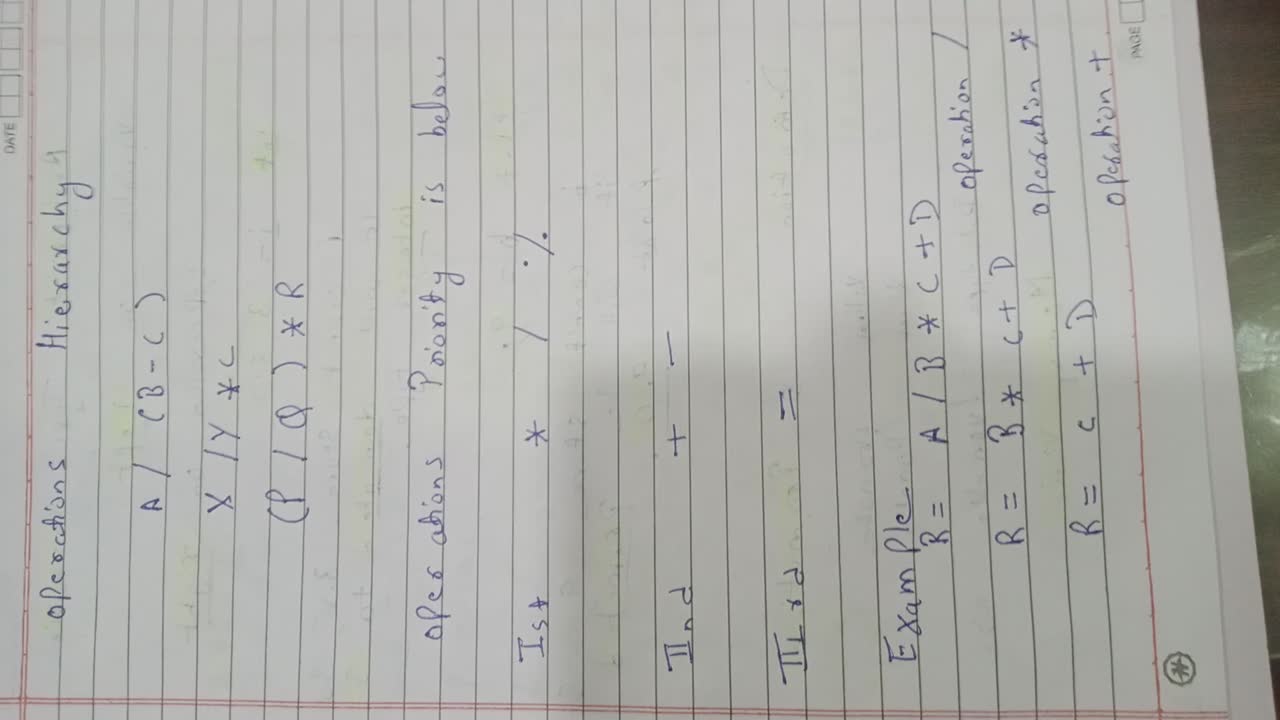 DATE
operations Hierarchy
A / (B - C)
X / Y * C
(P / Q) * R
operations Priority is below
Ist * / %
IInd + -
IIIrd =
Example
R = A / B * C + D
operation /
R = B * C + D
operation *
R = C + D
operation +
PAGE